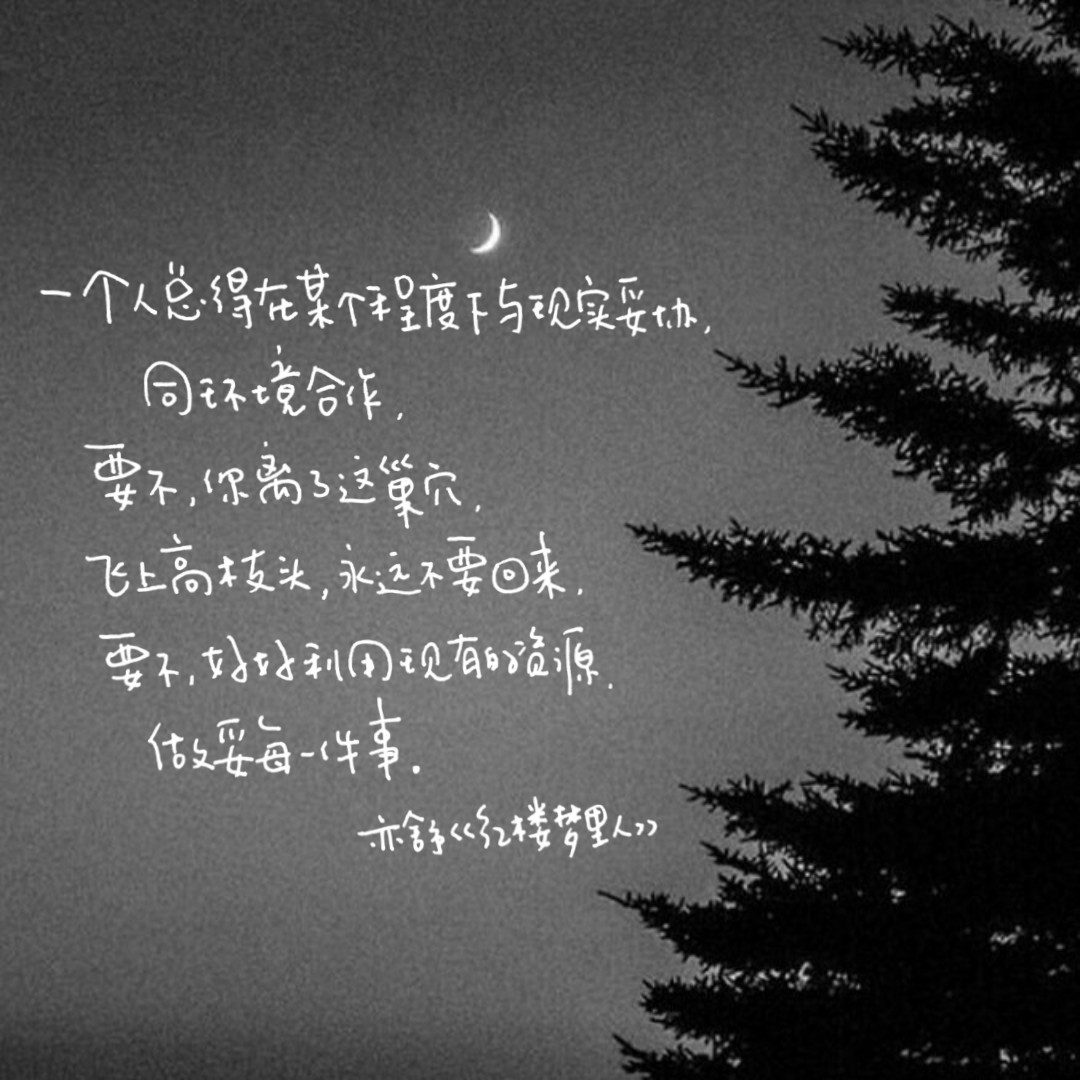 一个人总得在某个程度下与现实妥协,
同环境合作,
要不,你离了这巢穴,
飞上高枝头,永远不要回来,
要不,好好利用现有的资源,
做妥每一件事.
亦舒《红楼梦里人》